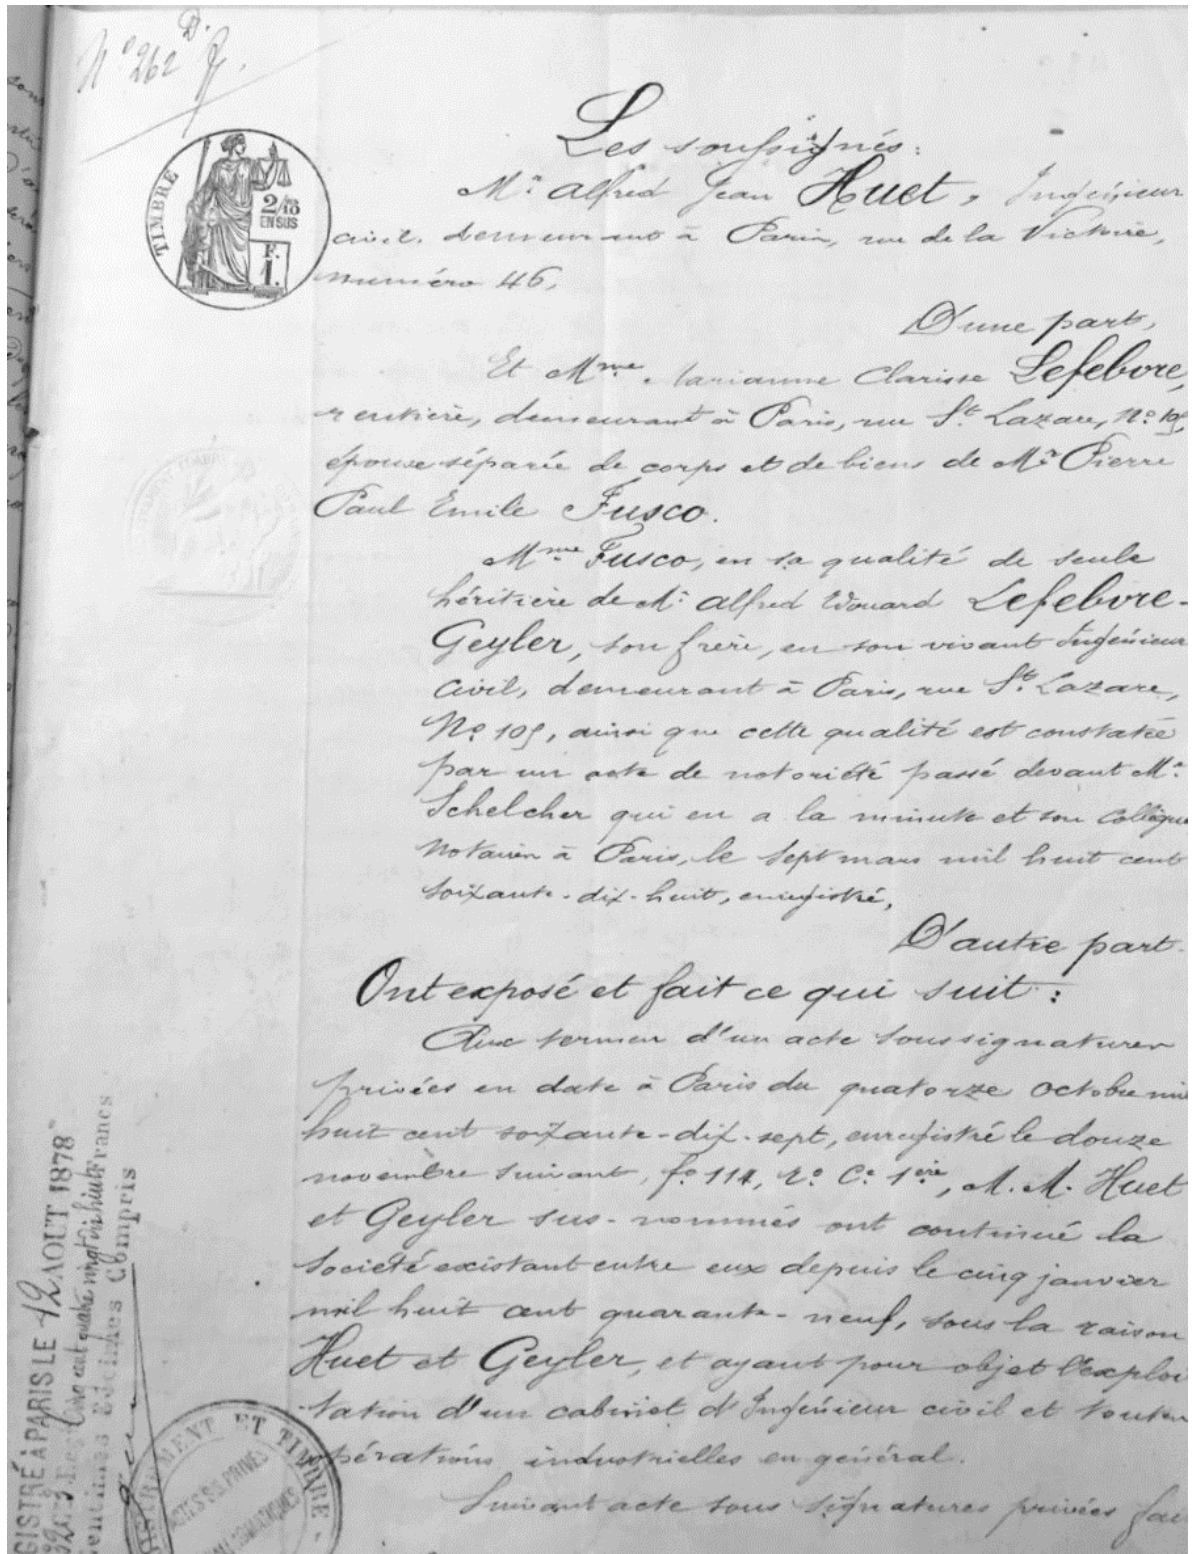 N° 262 D.
TIMBRE
2/10
EN SUS
F.
1.
Les soussignés:
Mr. Alfred Jean Huet, Ingénieur
civil, demeurant à Paris, rue de la Victoire,
numéro 46,
D'une part,
Et Mme Marianne Clarisse Lefebvre,
rentière, demeurant à Paris, rue St. Lazare, No. 105,
épouse séparée de corps et de biens de Mr. Pierre
Paul Emile Fusco.
Mme Fusco, en sa qualité de seule
héritière de Mr. Alfred Edouard Lefebvre-
Geyler, son frère, en son vivant Ingénieur
Civil, demeurant à Paris, rue St. Lazare,
No. 105, ainsi que cette qualité est constatée
par un acte de notoriété passé devant Me.
Schelcher qui en a la minute et son collègue
Notaires à Paris, le sept mars mil huit cent
soixante-dix-huit, enregistré,
D'autre part.
Ont exposé et fait ce qui suit:
Aux termes d'un acte sous signatures
privées en date à Paris du quatorze octobre mil
huit cent soixante-dix-sept, enregistré le douze
novembre suivant, fo. 114, Ro. C. 1ère, M. M. Huet
et Geyler sus-nommés ont continué la
Société existant entre eux depuis le cinq janvier
mil huit cent quarante-neuf, sous la raison
Huet et Geyler, et ayant pour objet l'exploi
-tation d'un cabinet d'Ingénieur civil et toutes
opérations industrielles en général.
Suivant acte sous signatures privées fai
GISTRÉ À PARIS LE 12 AOUT 1878
Cinq cent quatre vingt dix huit Francs
Centimes Décimes Compris
ET TIMBRE
ACTES S.S. PRIVÉS